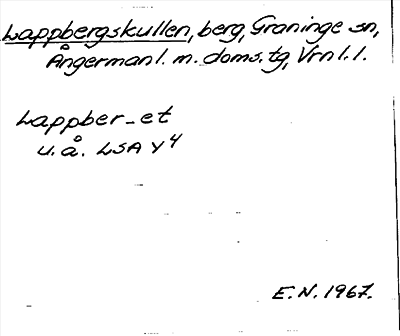 Lappbergskullen, berg, Graninge sn,
Ångermanl. m. doms. tg, Vrnl. l.
Lappber-et
u.å. LSA Y4
E.N. 1967.